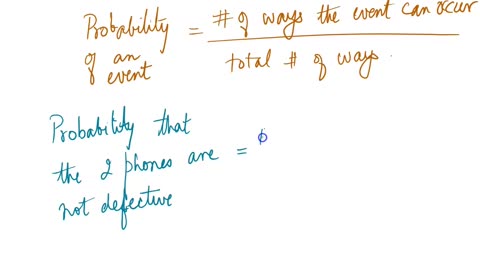 Probability = # of ways the event can occur
of an
event
total # of ways.
Probability that
the 2 phones are =
not defective